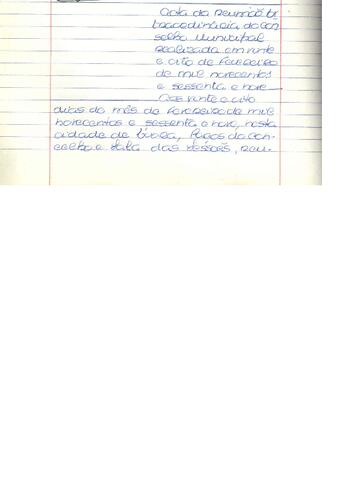 Acta da Reunião Ex
traordinária do Con
selho Municipal
realizada em vinte
e oito de Fevereiro
de mil novecentos
e sessenta e nove
Aos vinte e oito
dias do mês de Fevereiro de mil
novecentos e sessenta e nove, nesta
cidade de Évora, Paços do Con-
celho e Sala das Sessões, reu-